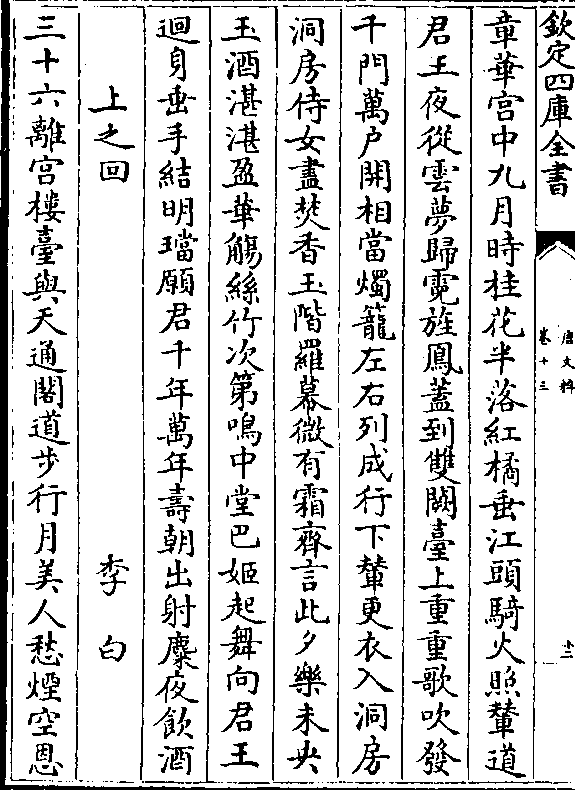 欽定四庫全書
唐文粹
卷十三
十三
章華宫中九月時桂花半落紅橘垂江頭騎火照輦道
君王夜從雲夢歸霓旌鳳蓋到雙闕臺上重重歌吹發
千門萬户開相當燭籠左右列成行下輦更衣入洞房
洞房侍女盡焚香玉階羅幕微有霜齊言此夕樂未央
玉酒湛湛盈華觴絲竹次第鳴中堂巴姬起舞向君王
迴身垂手結明璫願君千年萬年壽朝出射麋夜飲酒
上之回 李白
三十六離宫樓臺與天通閣道步行月美人愁煙空恩